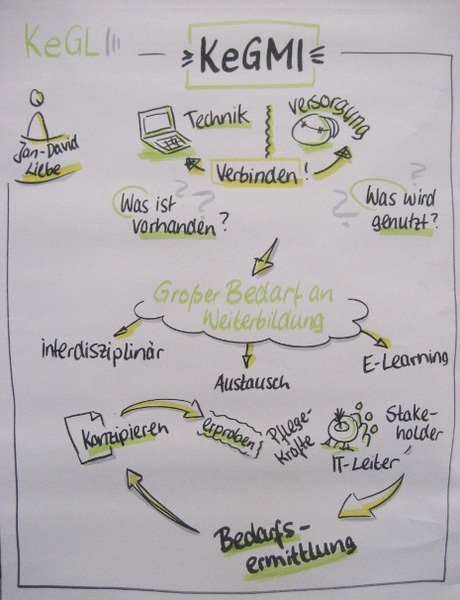 KeGL
KeGMI
Jan-David
Liebe
Technik
Versorgung
Verbinden!
Was ist
vorhanden?
Was wird
genutzt?
? ?
? ?
Großer Bedarf an
Weiterbildung
interdisziplinär
Austausch
E-Learning
Konzipieren
erproben
Pflege-
Kräfte
IT-Leiter
Stake-
holder
Bedarfs-
ermittlung